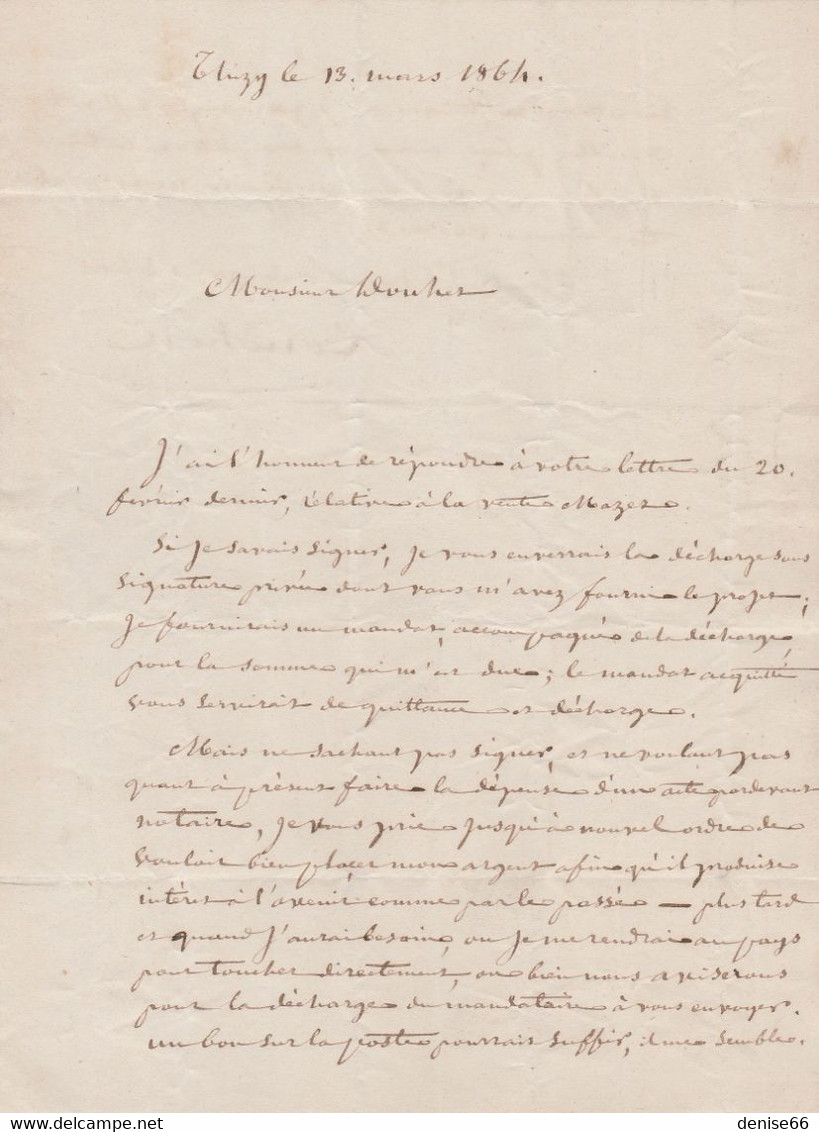 Thizy le 13. mars 1864.
Monsieur Douhet
J'ai l'honneur de répondre à votre lettre du 20.
février dernier, rélative à la vente Mazet.
Si je savais signer, je vous enverrais la décharge sous
signature privée dont vous m'avez fourni le projet;
je fournirais un mandat, accompagné de la décharge
pour la somme qui m'est due; le mandat acquitté
vous servirait de quittance et décharge.
Mais ne sachant pas signer, et ne voulant pas
quant à présent faire la dépense d'un acte pardevant
notaire, je vous prie jusqu'à nouvel ordre de
vouloir bien placer mon argent afin qu'il produise
intérêt à l'avenir comme par le passé — plus tard
et quand j'aurai besoin, ou je me rendrai au pays
pour toucher directement, ou bien nous aviserons
pour la décharge du mandataire à vous envoyer.
un bon sur la poste pourrait suffir, il me semble.
denise66